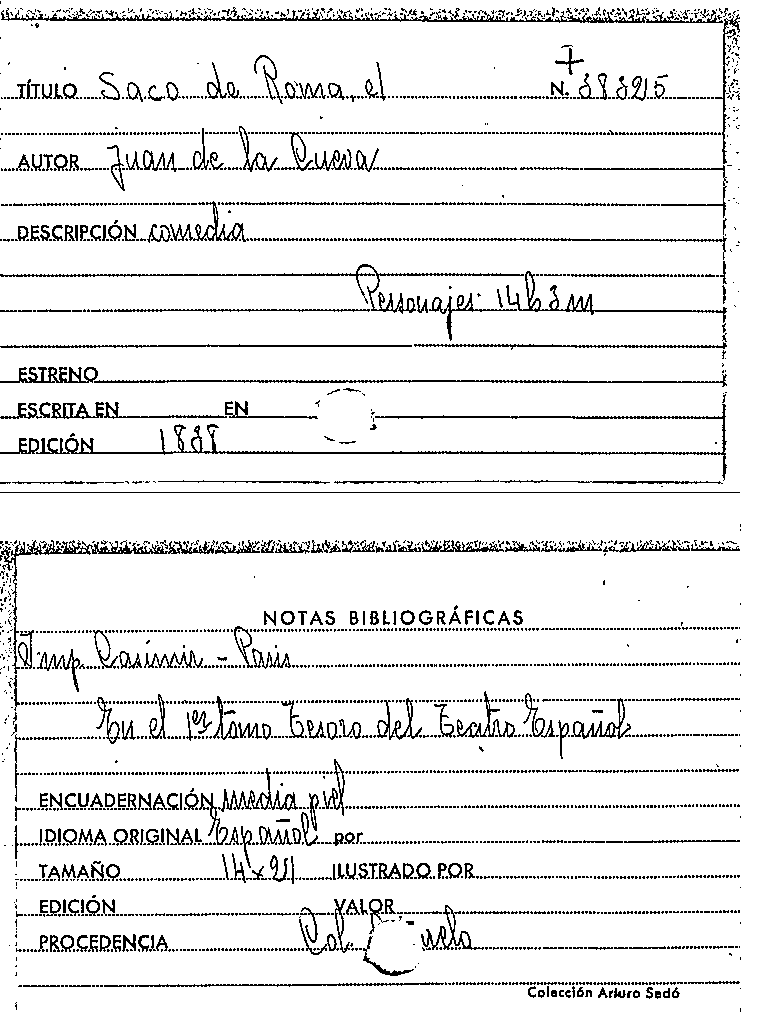 TÍTULO Saco de Roma, el
N. 38325
AUTOR Juan de la Cueva
DESCRIPCIÓN comedia
Personajes: 14 h 3 m
ESTRENO
ESCRITA EN EN
EDICIÓN 1838
NOTAS BIBLIOGRÁFICAS
Imp Casimir - Paris
En el 1er tomo Tesoro del Teatro Español
ENCUADERNACIÓN media piel
IDIOMA ORIGINAL Español por
TAMAÑO 14x21 ILUSTRADO POR
EDICIÓN VALOR
PROCEDENCIA Col.
Colección Arturo Sedó